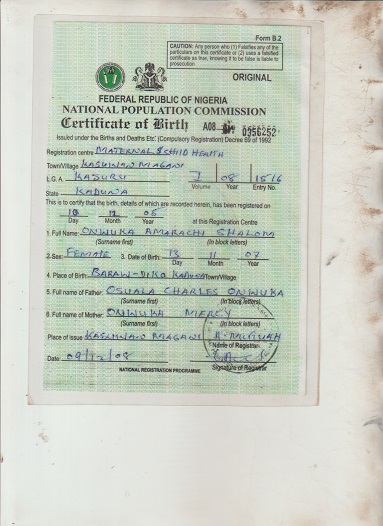 Form B.2
CAUTION: Any person who (1) Falsifies any of the
particulars on this certificate or (2) uses a falsified
certificate as true, knowing it to be false is liable to
prosecution
ORIGINAL
FEDERAL REPUBLIC OF NIGERIA
NATIONAL POPULATION COMMISSION
Certificate of Birth A08 0556252
Issued under the Births and Deaths Etc' (Compulsory Registration) Decree 69 of 1992
Registration centre MATERNAL & CHILD HEALTH
Town/Village KASUWAN MAGANI
L.G.A. KAJURU I 08 1516
Volume Year Entry No.
State KADUNA
This is to certify that the birth, details of which are recorded herein, has been registered on
Day Month Year at this Registration Centre
1. Full Name: ONWUKA AMARACHI SHALOM
(Surname first) (In block letters)
2. Sex: FEMALE 3. Date of Birth: 13 11 07
Day Month Year
4. Place of Birth: KADUNA Town/Village
5. Full name of Father: OSUALA CHARLES ONWUKA
(Surname first) (In block letters)
6. Full name of Mother: ONWUKA MERCY
(Surname first) (In block letters)
Place of issue KASUWAN MAGANI
Name of Registrar
Date: 09/12/08
Signature of Registrar
NATIONAL REGISTRATION PROGRAMME